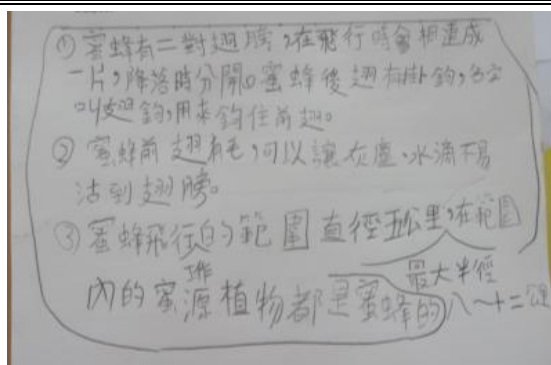 ①蜜蜂有二對翅膀，在飛行時會相連成
一片，降落時分開。蜜蜂後翅有掛鉤，
叫翅鉤，用來鉤住前翅。
②蜜蜂前翅有毛，可以讓灰塵、水滴不易
沾到翅膀。
③蜜蜂飛行的範圍直徑五公里，在範圍
工作
最大半徑
內的蜜源植物都是蜜蜂的
八~十二公里